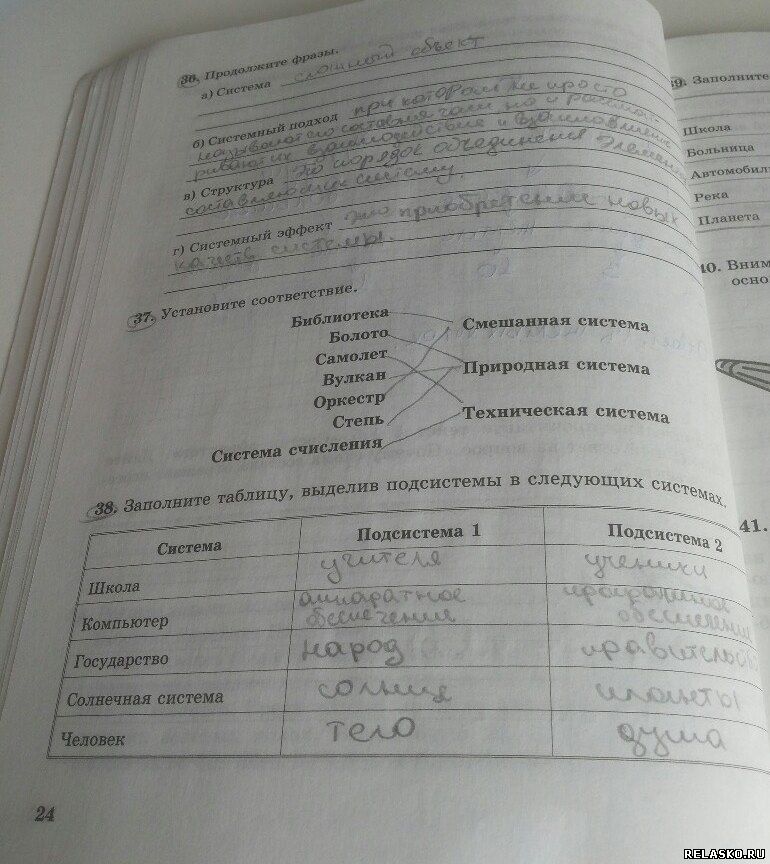 36. Продолжите фразы.
а) Система сложный объект
б) Системный подход при котором не просто
называют его составные части но и рассмат-
ривают их взаимодействие и взаимовлияние
в) Структура это порядок объединения элементов
составляющих систему.
г) Системный эффект это приобретение новых
качеств системы.
37. Установите соответствие.
Библиотека
Болото
Самолет
Вулкан
Оркестр
Степь
Система счисления
Смешанная система
Природная система
Техническая система
38. Заполните таблицу, выделив подсистемы в следующих системах.
Система Подсистема 1 Подсистема 2
Школа учителя ученики
Компьютер аппаратное обеспечение программное обеспечение
Государство народ правительство
Солнечная система солнце планеты
Человек тело душа
24
39. Заполните
Школа
Больница
Автомобил
Река
Планета
40. Вним
осно
41.
RELASKO.RU